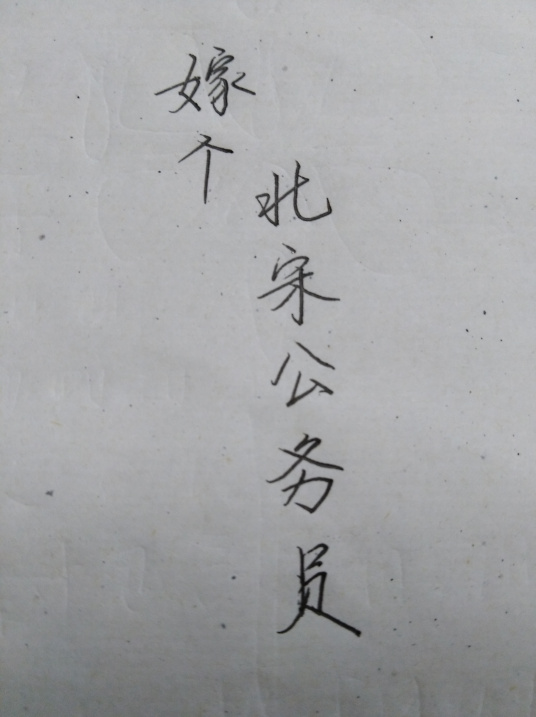 嫁个
北宋公务员